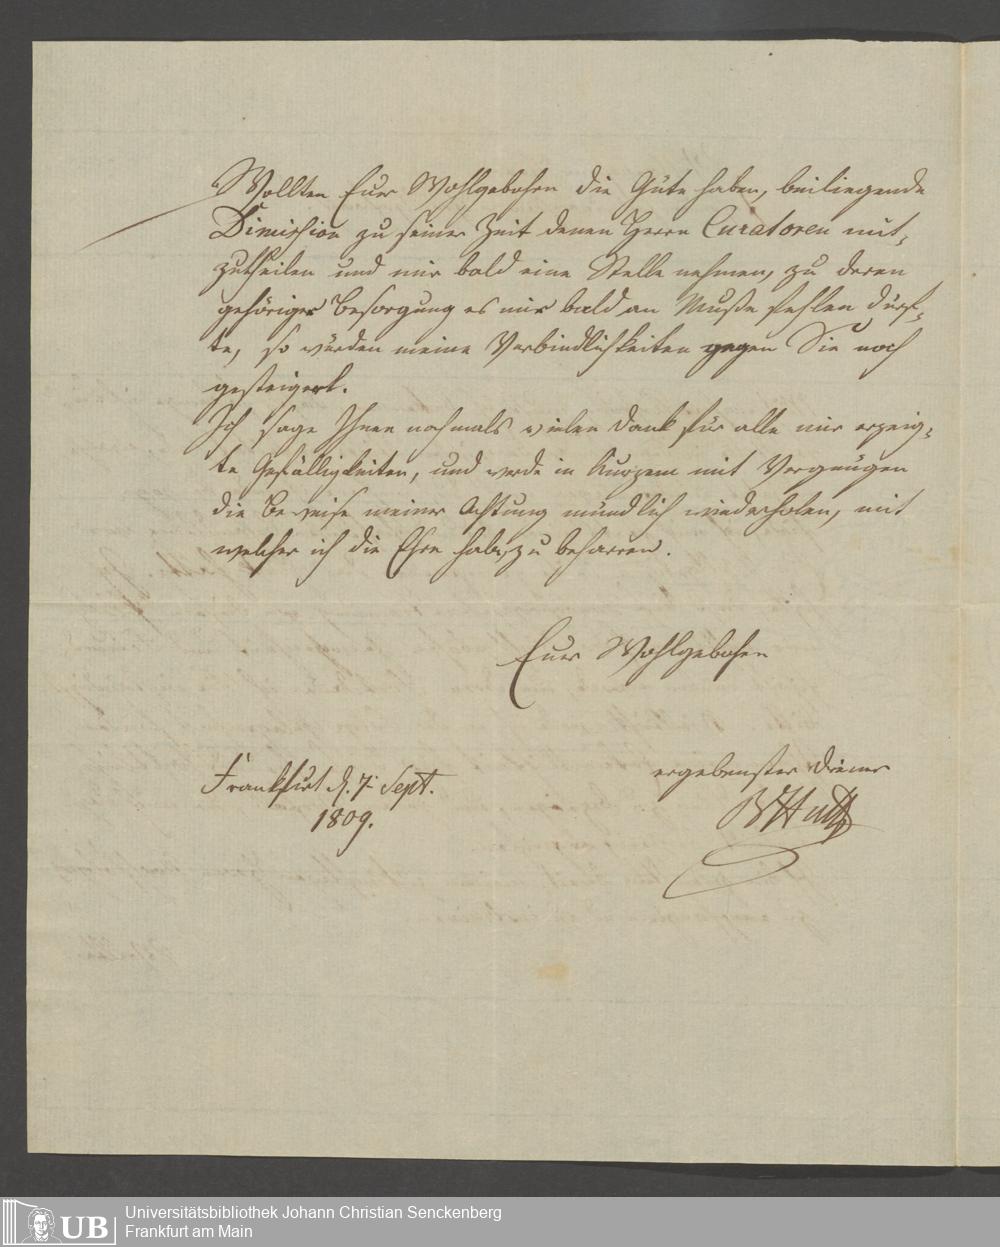 Wollten Euer Wohlgebohrn die Güte haben, beiliegende
Dimission zu seiner Zeit denen Herrn Curatoren mit-
zutheilen und mir bald eine Stelle nehmen, zu deren
gehöriger Besorgung es mir bald an Muße fehlen dürf-
te, so würden meine Verbindlichkeiten gegen Sie noch
gesteigert.
Ich sage Ihnen nochmals vielen Dank für alle mir erzeig-
te Gefälligkeiten, und werde in Kurzem mit Vergnügen
die Beweise meiner Achtung mündlich wiederholen, mit
welcher ich die Ehre habe, zu beharren.
Euer Wohlgebohrn
ergebenster Diener
Frankfurt d. 7. Sept.
1809.
UB
Universitätsbibliothek Johann Christian Senckenberg
Frankfurt am Main